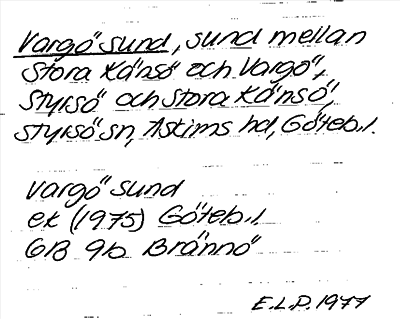 Vargö sund, sund mellan
Stora Känsö och Vargö,
Styrsö och Stora Känsö,
Styrsö sn, Askims hd, Göteb.l.
Vargö sund
ek (1975) Göteb.l.
6B 9b Brännö
E.L.P. 1977